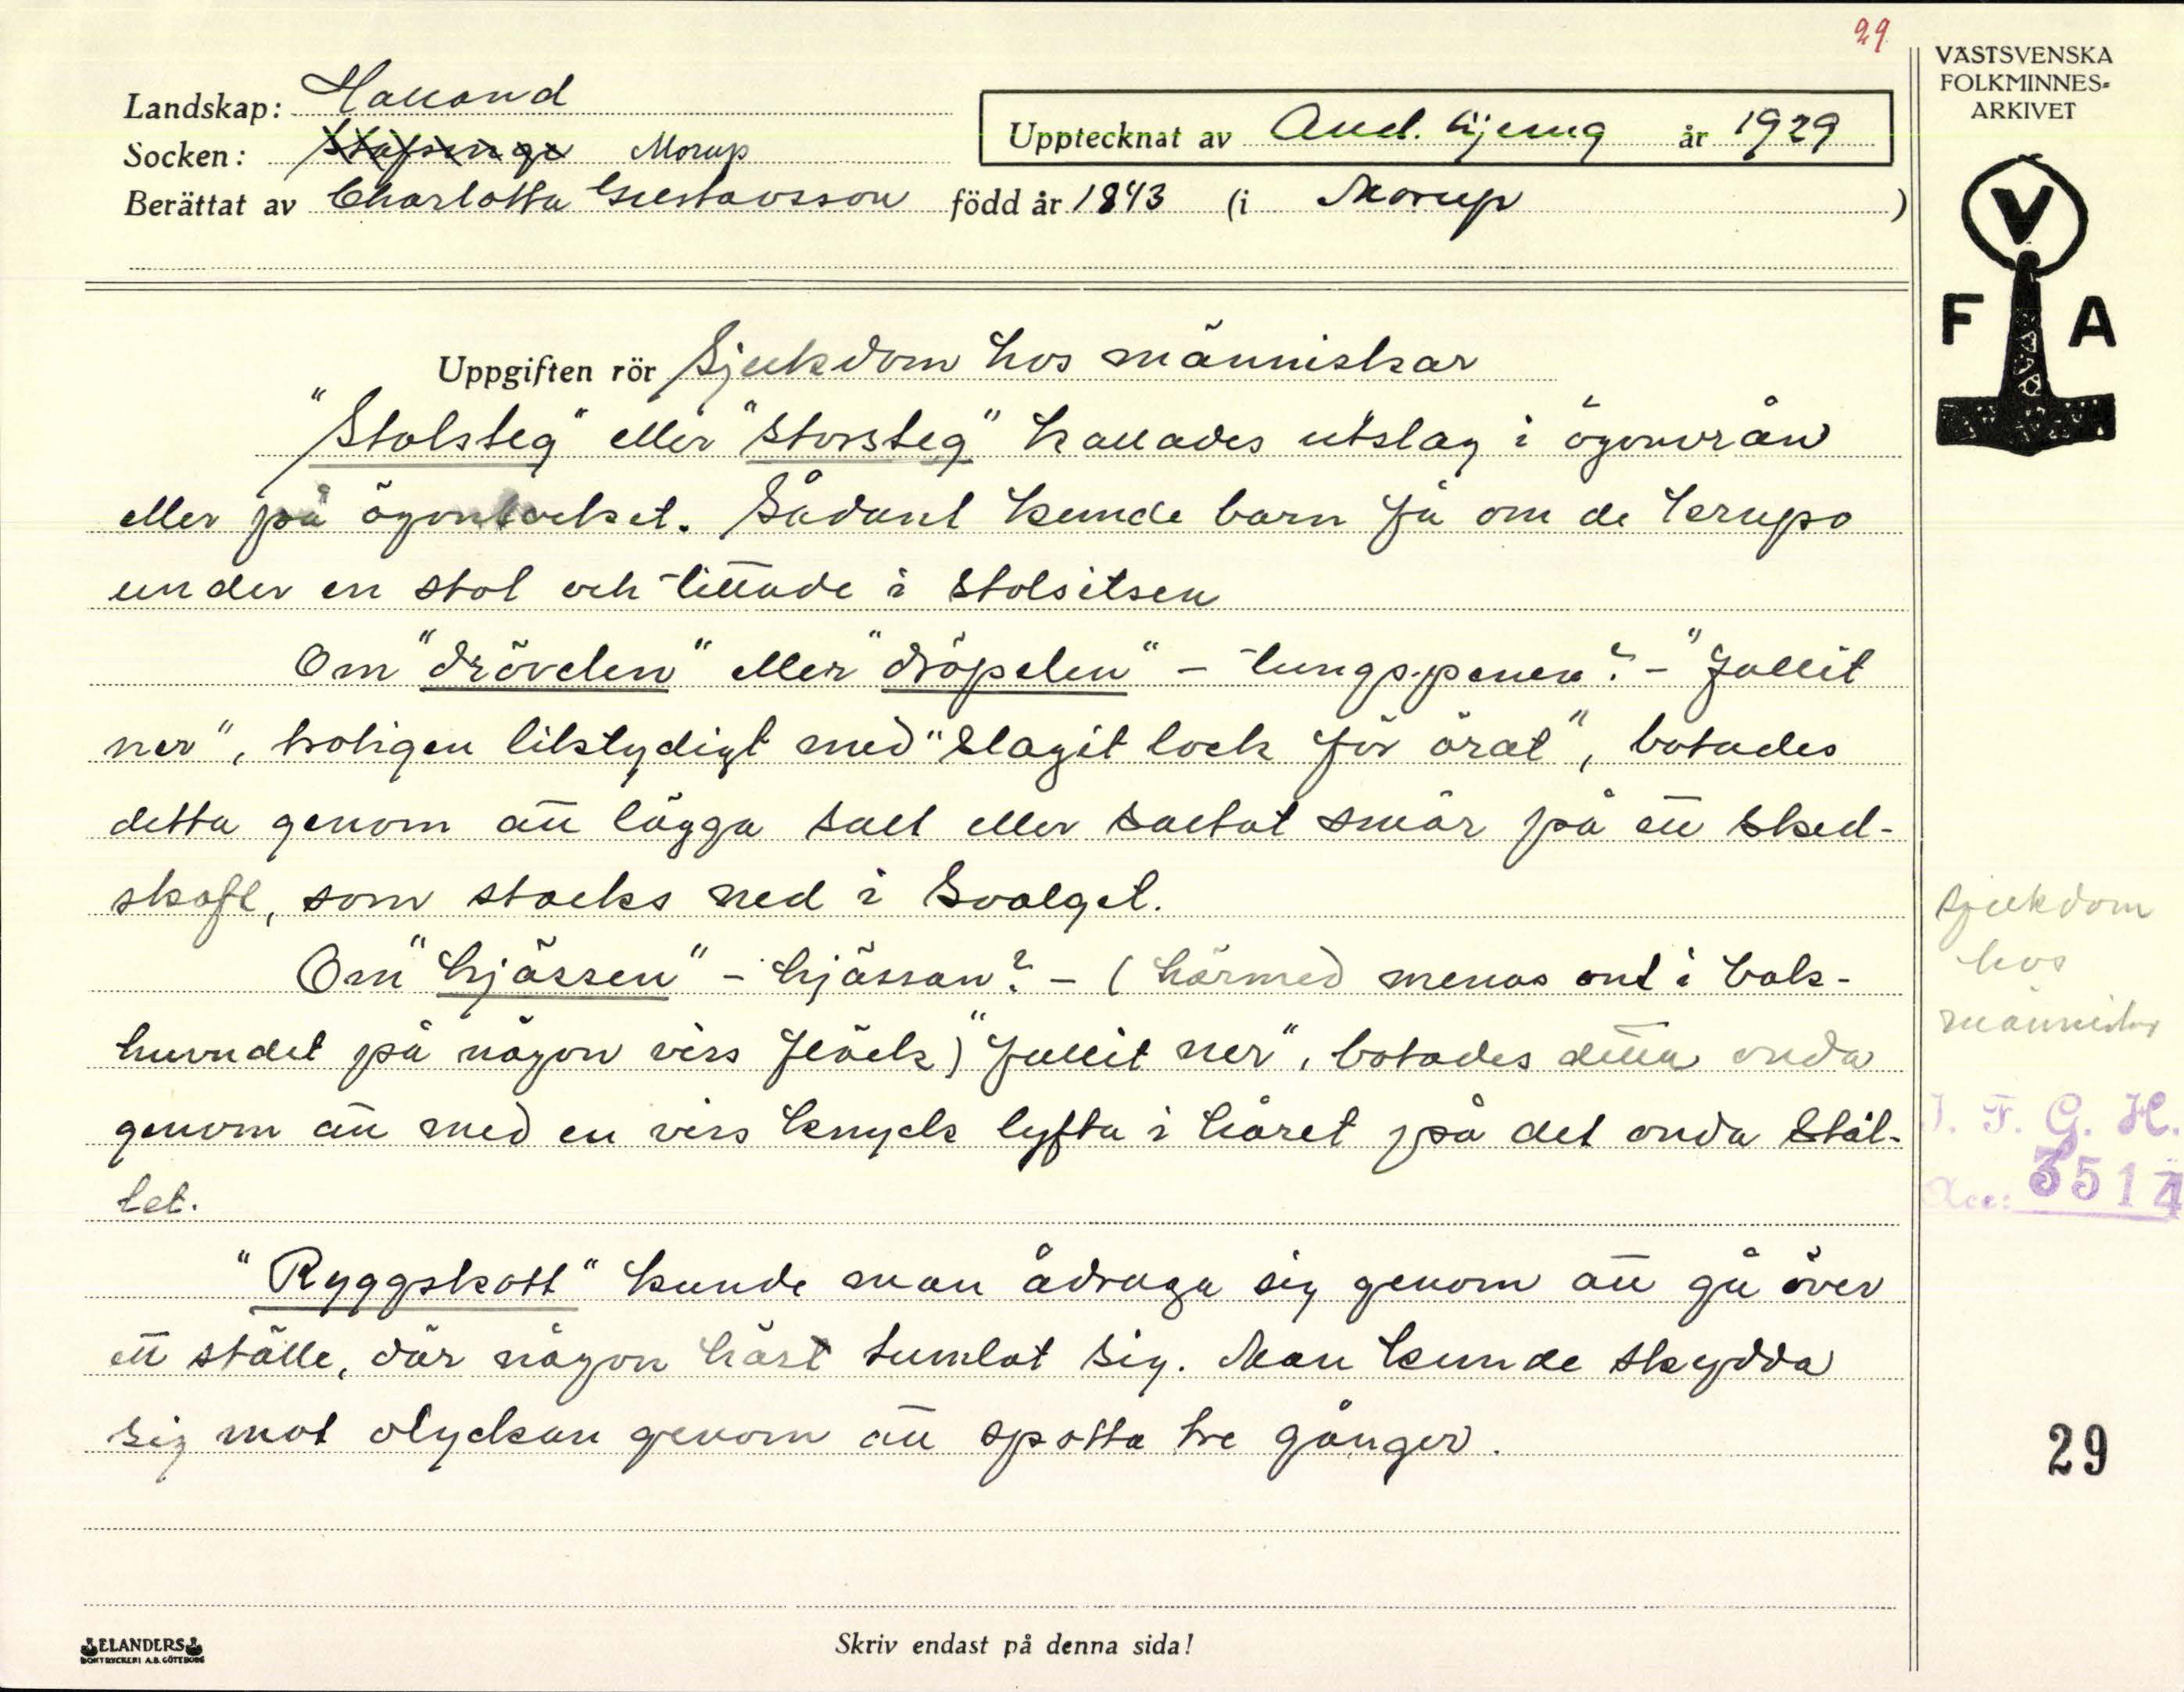 29
VÄSTSVENSKA
FOLKMINNES-
ARKIVET
Landskap: Halland
Upptecknat av år 1929
Socken: Stafsinge Morup
Berättat av Charlotta Gustavsson född år 1843 (i Morup)
V
F A
Uppgiften rör Sjukdom hos människar
"Stolsteg" eller "storsteg" kallades utslag i ögonvrån
eller på ögonlocket. Sådant kunde barn få om de krupo
under en stol och tittade i stolsitsen
Om "drövelen" eller "dröpelen" - tungspenen? - "fallit
ner", troligen liktydigt med "slagit lock för örat", botades
detta genom att lägga salt eller saltat smör på ett sked-
skaft, som stacks ned i svalget.
Om "hjässen" - hjässan? - (härmed menas ont i bak-
huvudet på någon viss fläck) "fallit ner", botades detta onda
genom att med en viss knyck lyfta i håret på det onda stäl-
let.
"Ryggskott" kunde man ådraga sig genom att gå över
ett ställe, där någon häst tumlat sig. Man kunde skydda
sig mot olyckan genom att spotta tre gånger.
sjukdom
hos
människ
I. F. G. H.
Acc: 3514
29
ELANDERS
BOKTRYCKERI A.B. GÖTEBORG
Skriv endast på denna sida!